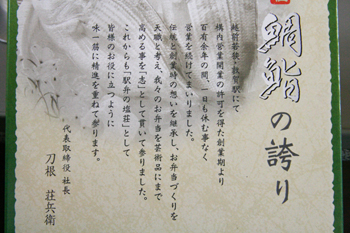 鯛鮨の誇り
越前若狭・敦賀駅にて
構内営業開業の許可を得た創業期より
百有余年の間、一日も休む事なく
営業を続けてまいりました。
伝統と創業時の想いを継承し、お弁当づくりを
天職と考え、我々のお弁当を芸術品にまで
高める事を「志」として貫いて参りました。
これからも「駅弁の塩荘」として
皆様のお役に立つように
味一筋に精進を重ねて参ります。
代表取締役 社長
刀根 荘兵衛